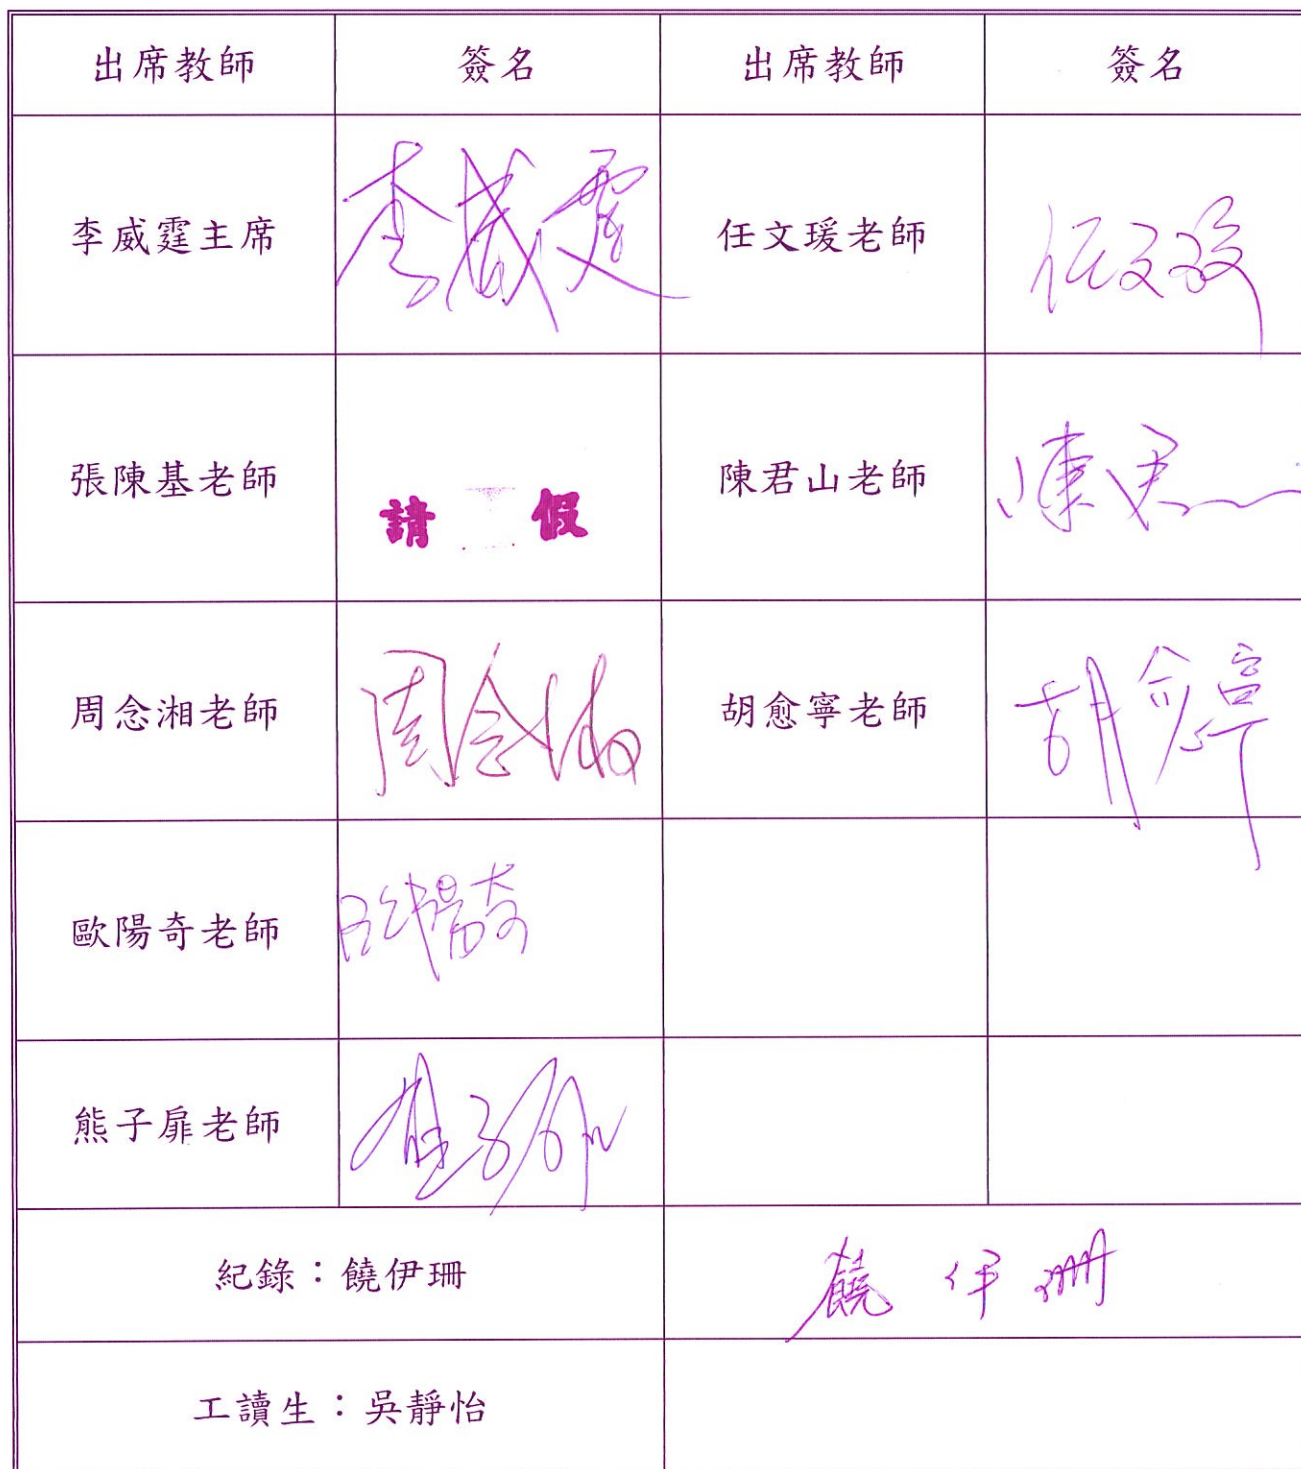 出席教師 簽名 出席教師 簽名
李威霆主席 李威霆 任文瑗老師 任文瑗
張陳基老師 請 假 陳君山老師 陳君山
周念湘老師 周念湘 胡愈寧老師 胡愈寧
歐陽奇老師 歐陽奇
熊子扉老師 熊子扉
紀錄：饒伊珊 饒伊珊
工讀生：吳靜怡